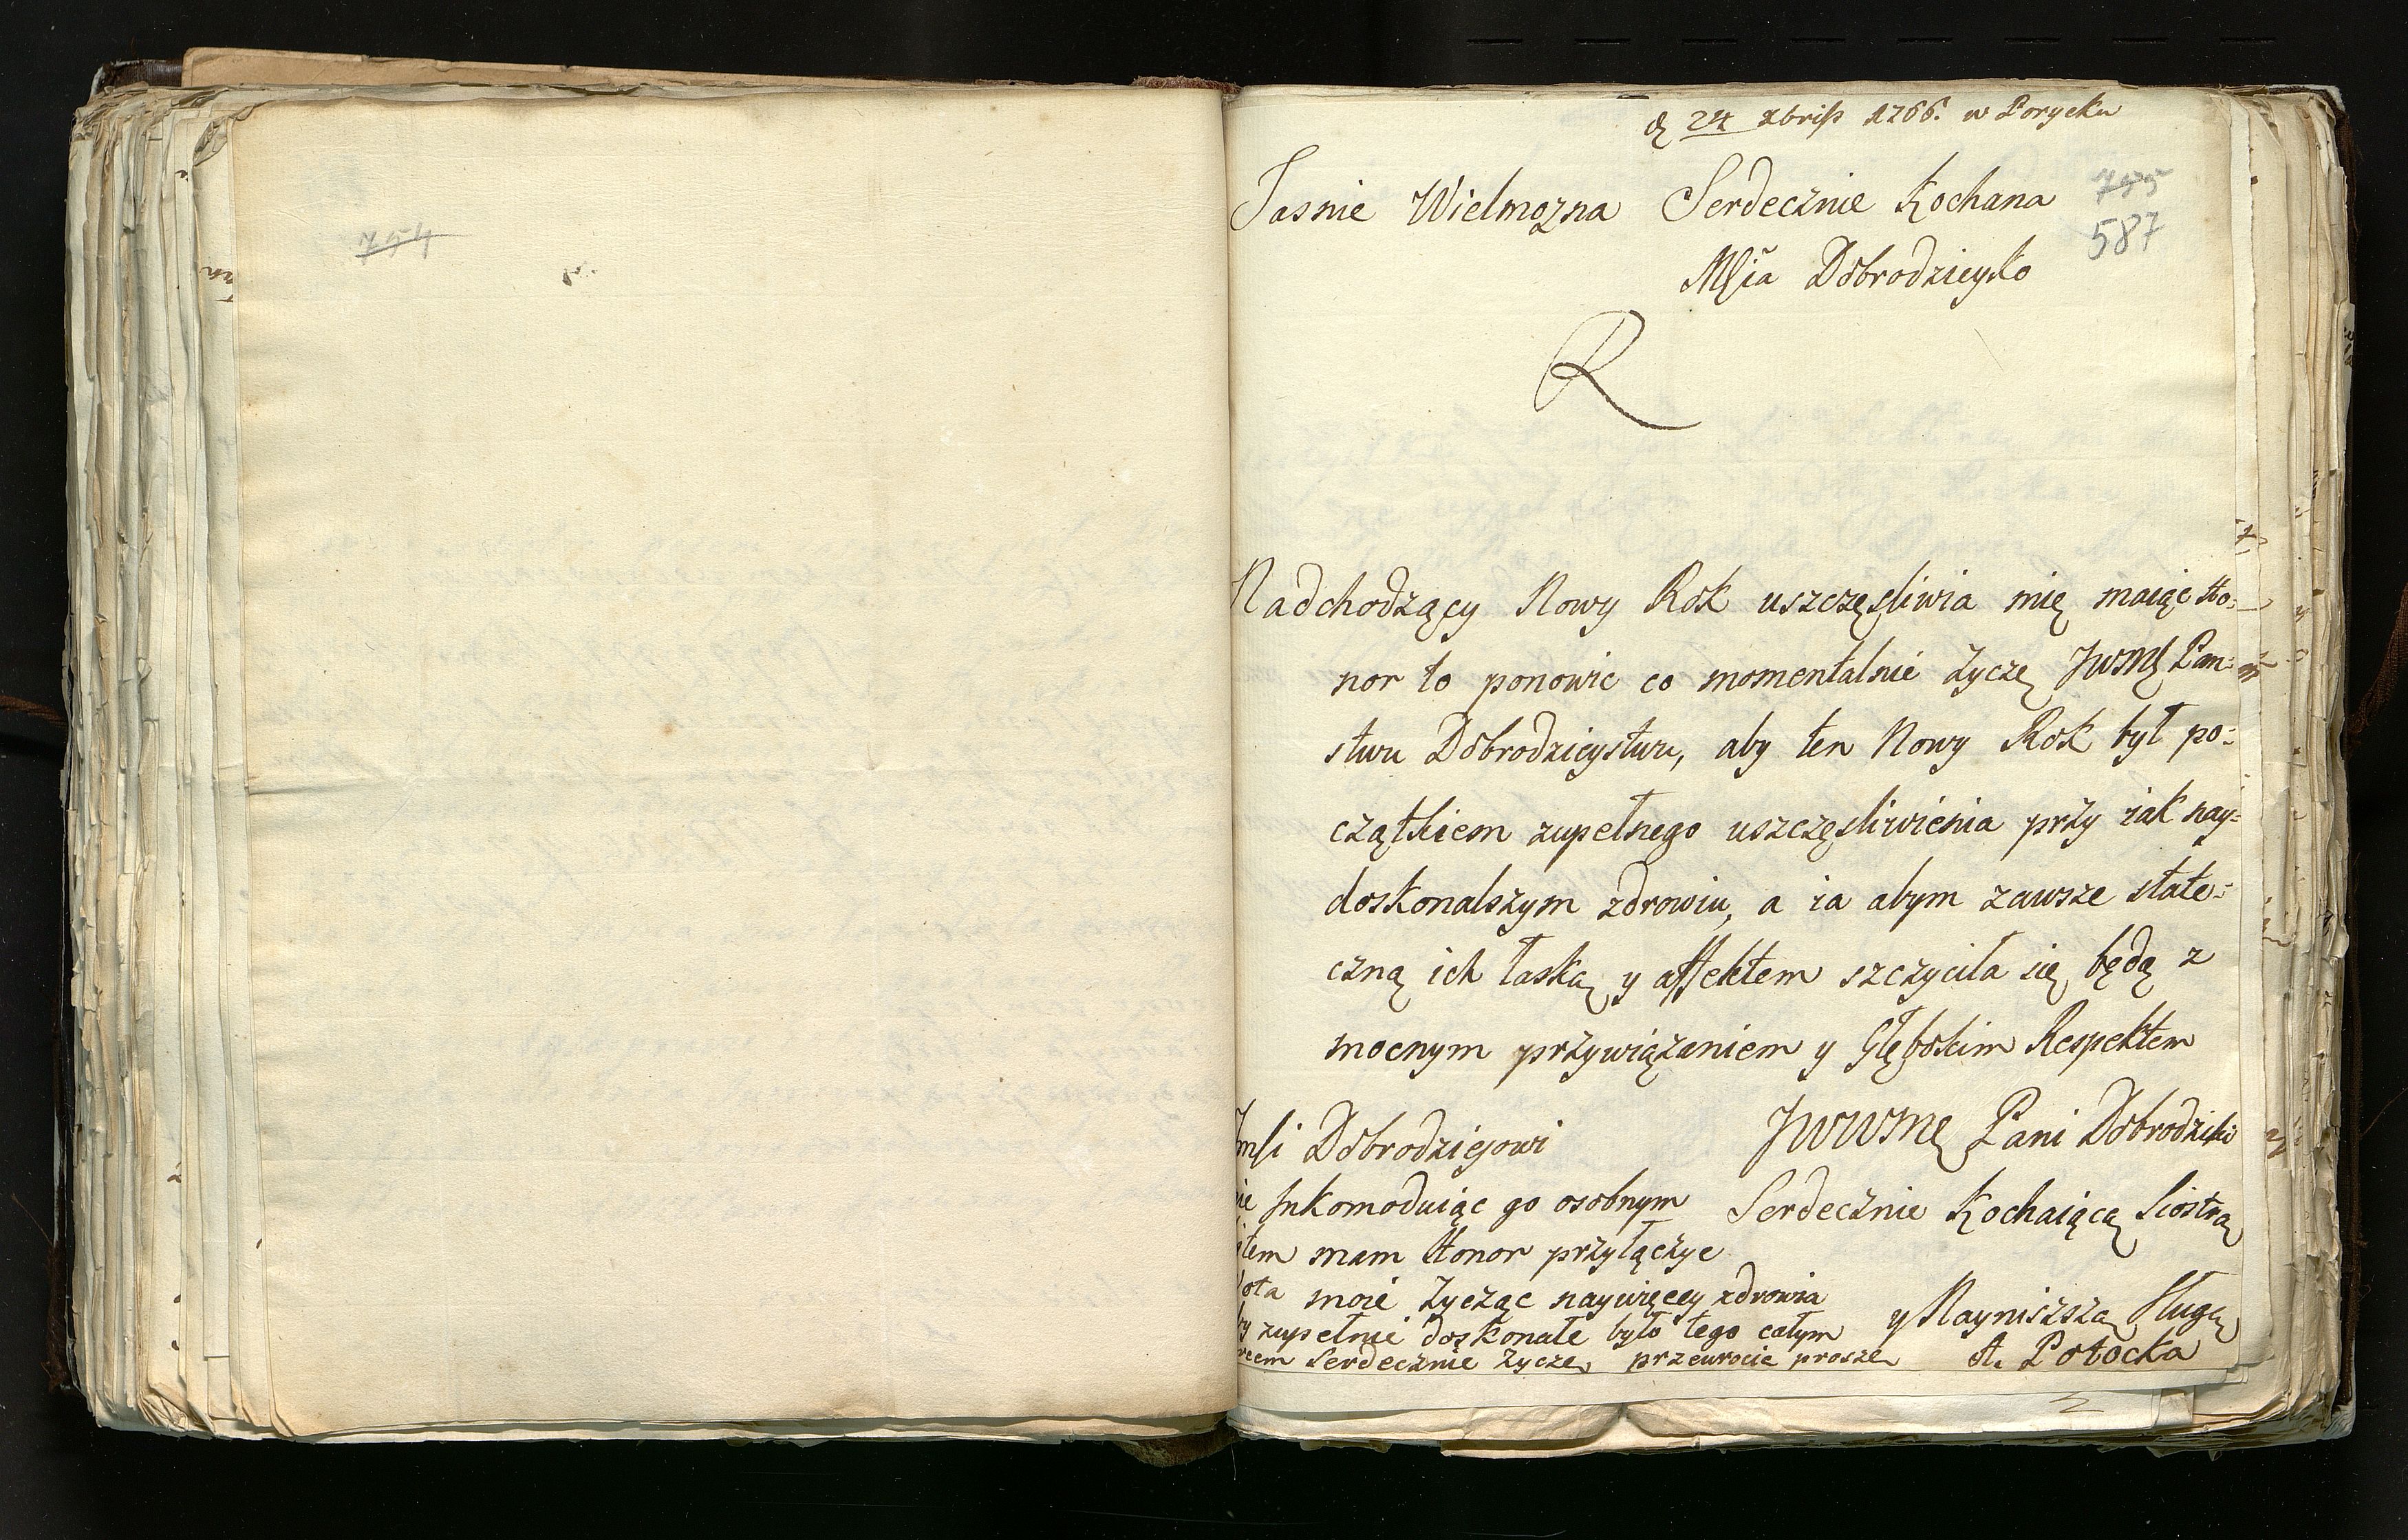 754
d 24 xbriß 1766. w Porycku
Jasnie Wielmożna Serdecznie Kochana
755
587
Mścia Dobrodzieyko
R
Nadchodzący Nowy Rok uszczęsliwia mię maiąc Ho-
nor to ponowic co momentalnie życzę JWMę Pan-
stwu Dobrodzieystwu, aby ten Nowy Rok był po-
czątkiem zupełnego uszczęsliwienia przy iak nay-
doskonalszym zdrowiu, a ia abym zawsze state-
czną ich łaską y affektem szczyciła się będą z
mocnym przywiązaniem y Głębokim Respektem
JWWMę Pani Dobrodziki
Serdecznie Kochaiącą Siostrą
y Nayniszszą Sługą
A. Potocka
Dobrodziejowi
Inkomoduiąc go osobnym
mam Honor przyłączyc
moie życząc naywięcey zdrowia
zupełnie doskonałe było tego całym
Serdecznie życzę przewrocic proszę